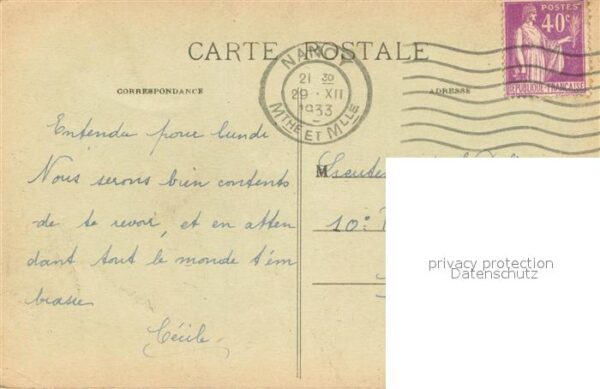 CARTE POSTALE
CORRESPONDANCE
ADRESSE
NANCY
21 30
29 · XII
1933
MTHE ET MLLE
POSTES
40c
REPUBLIQUE FRANÇAISE
Entendu pour lundi
Nous serons bien contents
de te revoir, et en atten
dant tout le monde t'em
brasse
Cécile.
M
10e
privacy protection
Datenschutz